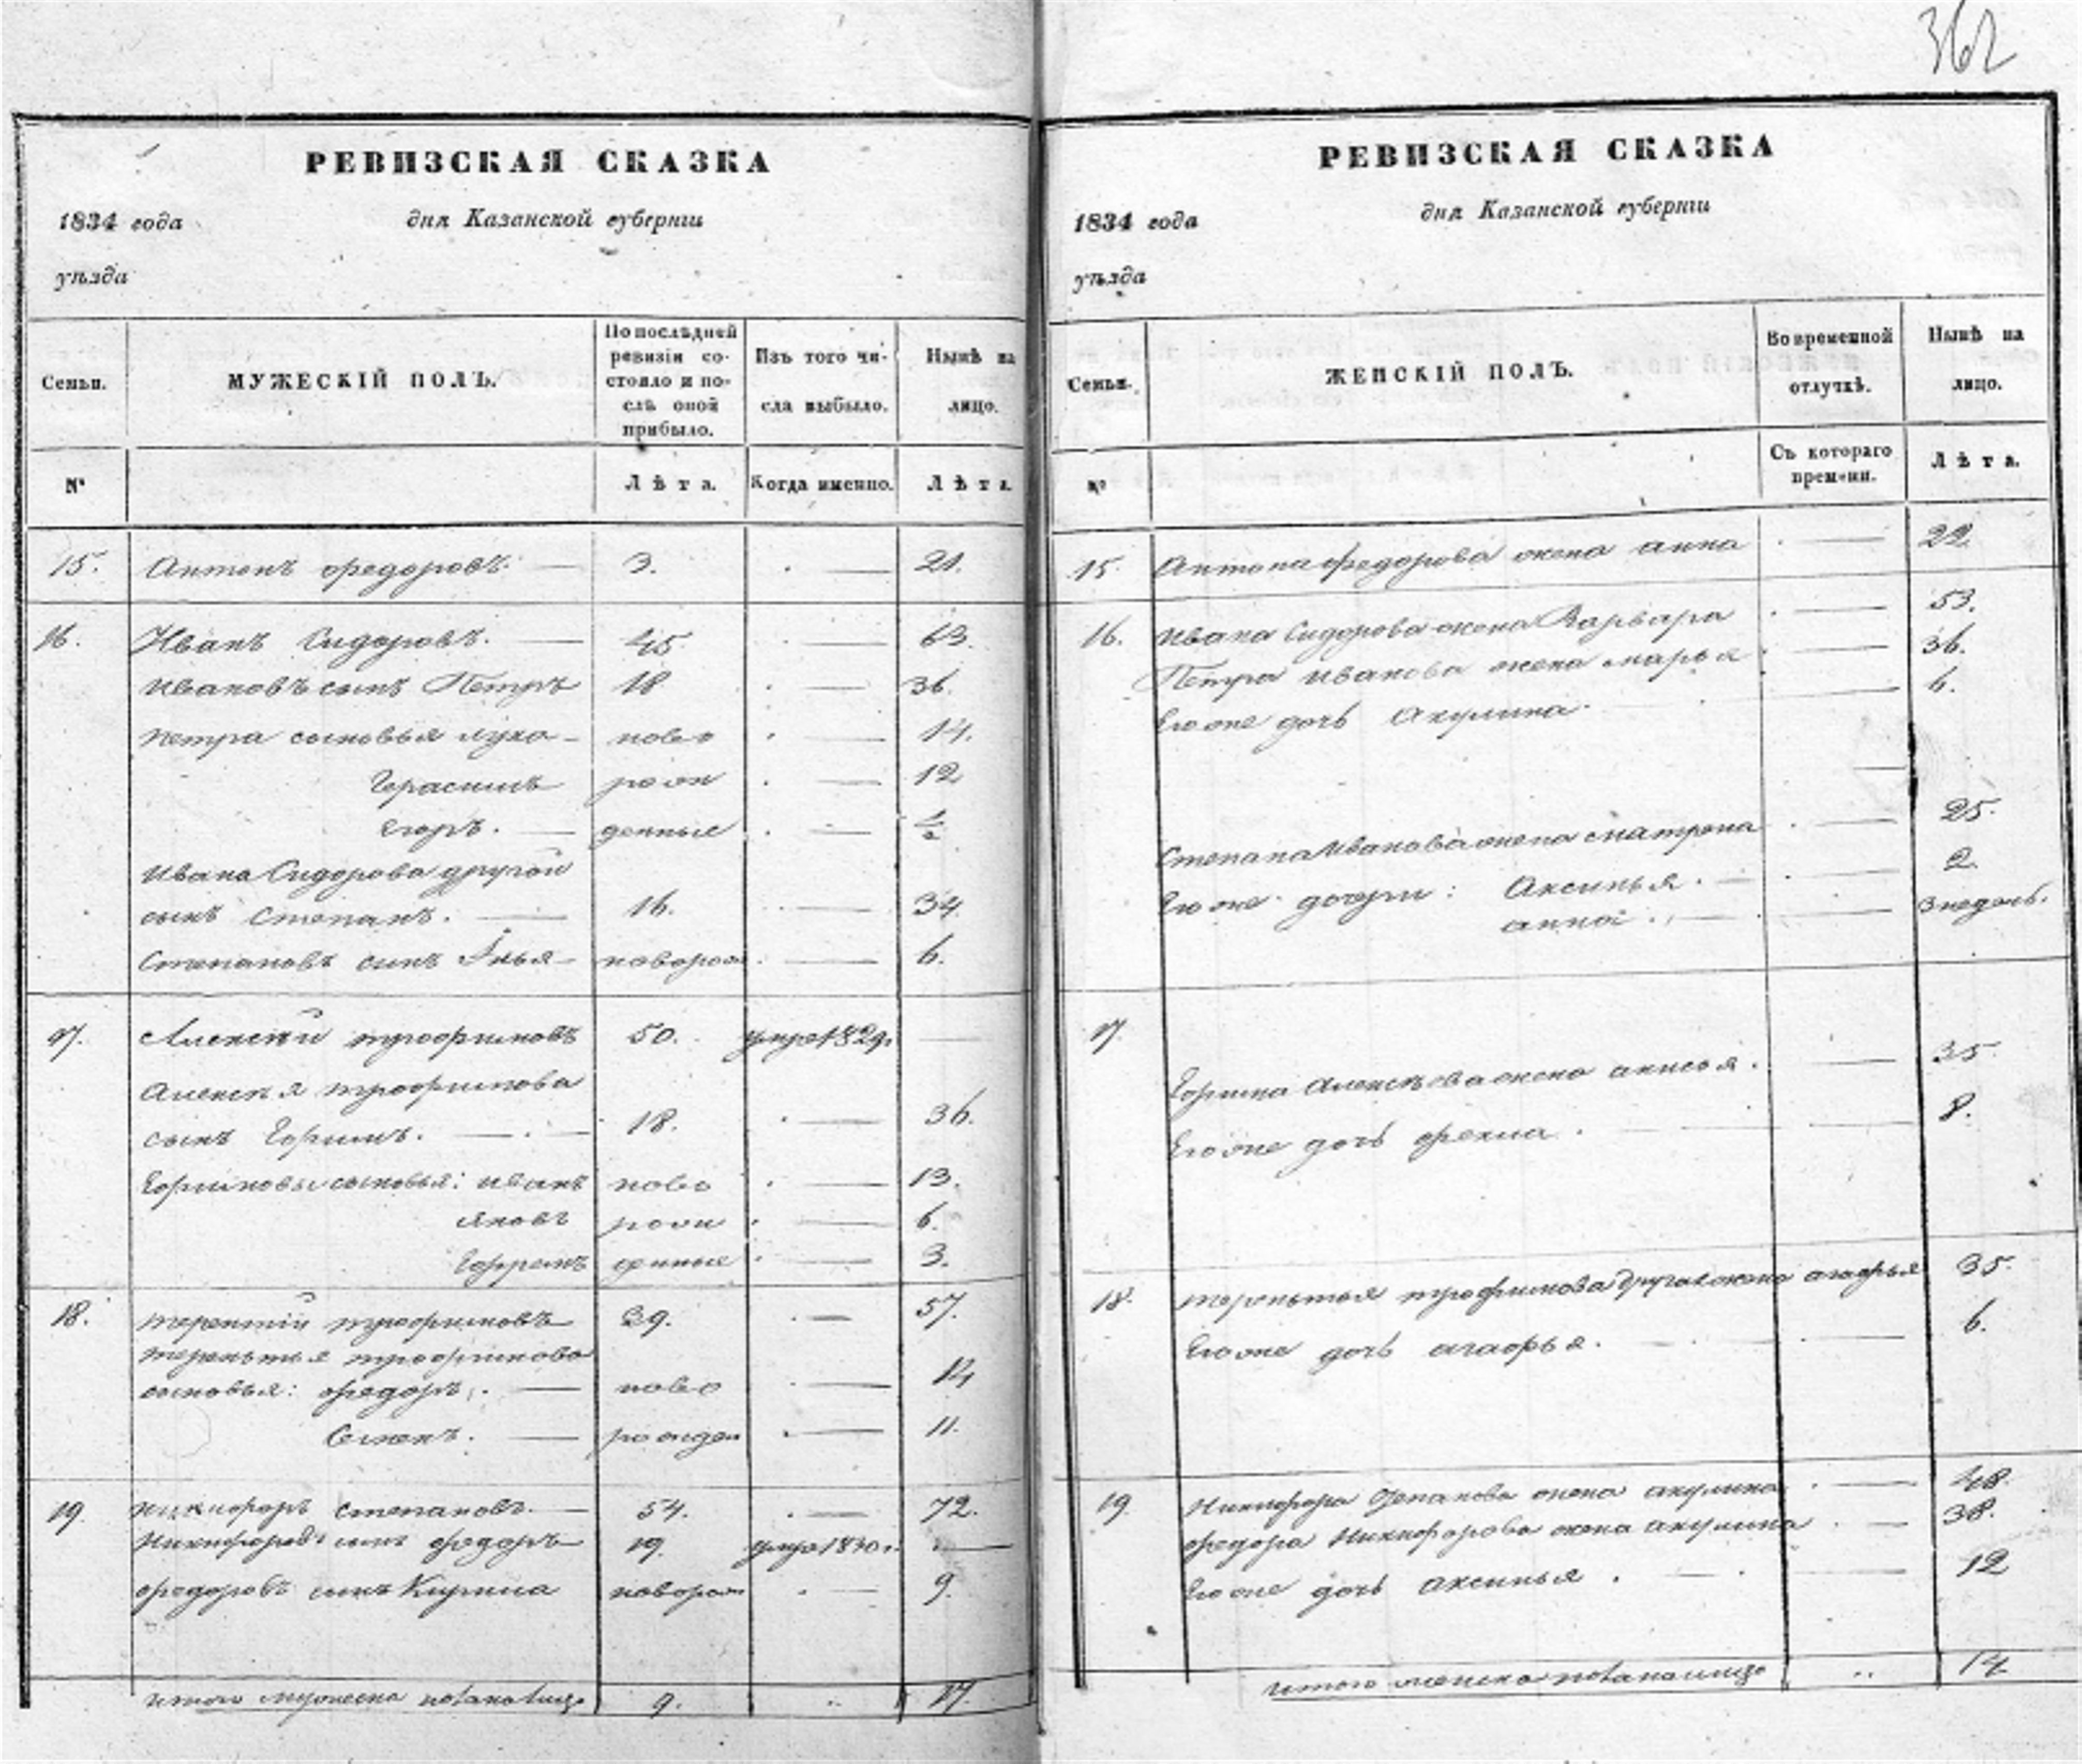 362
РЕВИЗСКАЯ СКАЗКА
1834 года дня Казанской губернiи
уѣзда
Семьи. МУЖЕСКIЙ ПОЛЪ. По послѣдней ревизiи состояло и послѣ оной прибыло. Изъ того числа выбыло. Нынѣ на лицо.
№ Лѣта. Когда именно. Лѣта.
15. Антонъ Федоровъ. 3. 21.
16. Иванъ Сидоровъ. 45 63.
Ивановъ сынъ Петръ 18 36.
Петра сыновья Лука ново 14.
Герасимъ рож 12
Егоръ. денные ½
Ивана Сидорова другой
сынъ Степанъ. 16. 34.
Степановъ сынъ Илья новорож 6.
17. Алексѣй Трофимовъ 50. умре 1829.
Алексѣя Трофимова
сынъ Ефимъ. 18. 36.
Ефимовы сыновья: Иванъ ново 13.
Яковъ рож 6.
Ефремъ денные 3.
18. Терентiй Трофимовъ 39. 57.
Терентья Трофимова
сыновья: Федоръ. ново 14
Семенъ. рожден 11.
19. Никифоръ Степановъ. 54. 72.
Никифоровъ сынъ Федоръ 19. умре 1830.
Федоровъ сынъ Кирила новорож 9.
Итого мужеска пола на лицо 9. 17.
РЕВИЗСКАЯ СКАЗКА
1834 года дня Казанской губернiи
уѣзда
Семьи. ЖЕНСКIЙ ПОЛЪ. Во временной отлучкѣ. Нынѣ на лицо.
№ Съ котораго времени. Лѣта.
15. Антона Федорова жена Анна 22.
16. Ивана Сидорова жена Варвара 53.
Петра Иванова жена Марья 36.
Его же дочь Акулина. 6.
Степана Иванова жена Матрена 25.
Его же дочери: Аксинья. 2.
Анна. 3 недель.
17.
Ефима Алексѣева жена Анисья. 35.
Его же дочь Фекла. 8.
18. Терентья Трофимова другая жена Агафья 35.
Его же дочь Агафья. 6.
19. Никифора Степанова жена Акулина 48.
Федора Никифорова жена Акулина 38.
Его же дочь Аксинья. 12
Итого женска пола на лицо 14